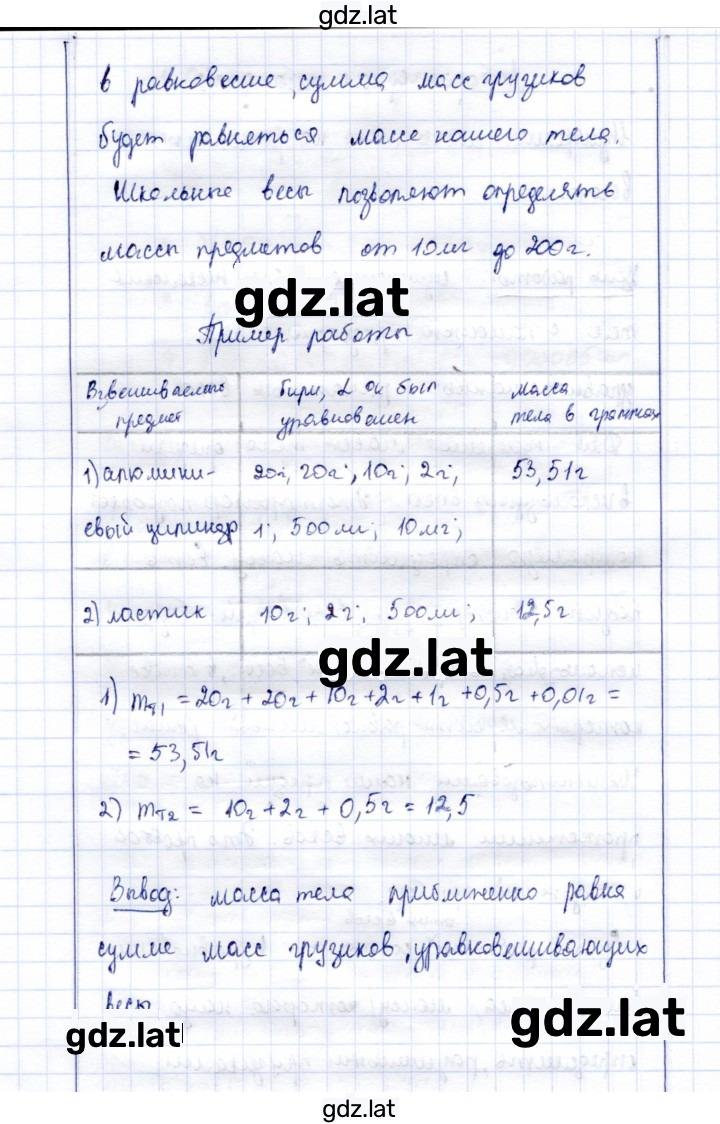 gdz.lat
в равновесие, сумма масс грузиков
будет равняться массе нашего тела.
Школьные весы позволяют определять
массы предметов от 10мг до 200г.
gdz.lat
Пример работы
Взвешиваемый предмет | Гири, которыми он был уравновешен | масса тела в граммах
1) алюмини- 20г, 20г, 10г, 2г, 53,51г
евый цилиндр 1г, 500мг; 10мг;
2) ластик 10г; 2г; 500мг; 12,5г
gdz.lat
1) mт1 = 20г + 20г + 10г + 2г + 1г + 0,5г + 0,01г =
= 53,51г
2) mт2 = 10г + 2г + 0,5г = 12,5
Вывод: масса тела приближенно равна
сумме масс грузиков, уравновешивающих
весы
gdz.lat
gdz.lat
gdz.lat